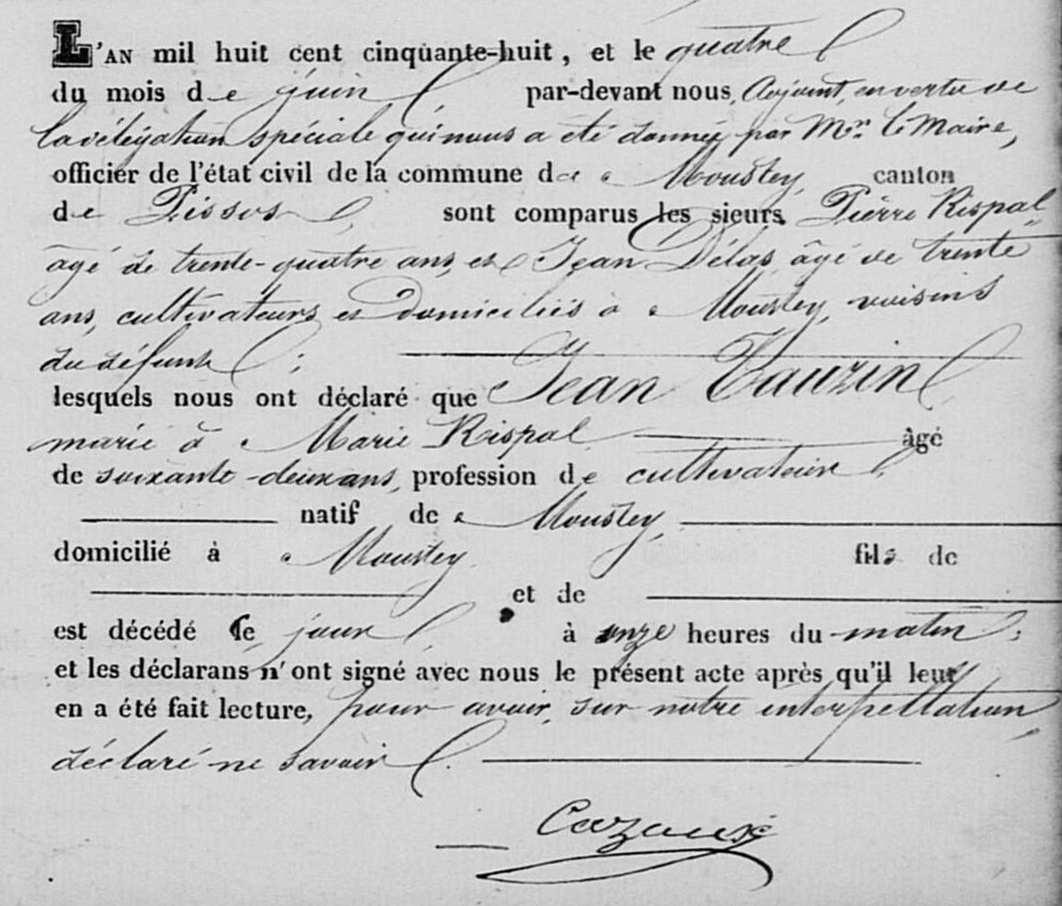 L'AN mil huit cent cinquante-huit, et le quatre
du mois de juin par-devant nous, Adjoint, en vertu de
la délégation spéciale qui nous a été donnée par Mr. le Maire,
officier de l'état civil de la commune de Moustey, canton
de Pissos, sont comparus les sieurs Pierre Rispal,
âgé de trente-quatre ans, et Jean Délas, âgé de trente
ans, cultivateurs et domiciliés à Moustey, voisins
du défunt;
lesquels nous ont déclaré que Jean Tauzin,
marié à Marie Rispal âgé
de soixante-deux ans, profession de cultivateur,
natif de Moustey,
domicilié à Moustey fils de
et de
est décédé ce jour à onze heures du matin;
et les déclarans n'ont signé avec nous le présent acte après qu'il leur
en a été fait lecture, pour avoir, sur notre interpellation,
déclaré ne savoir.
Cazaux